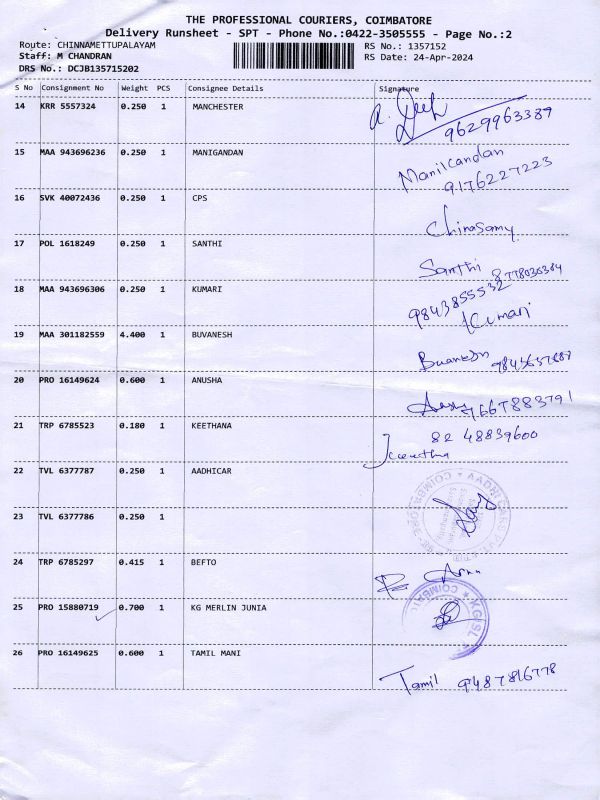 THE PROFESSIONAL COURIERS, COIMBATORE
Delivery Runsheet - SPT - Phone No.:0422-3505555 - Page No.:2
Route: CHINNAMETTUPALAYAM RS No.: 1357152
Staff: M CHANDRAN RS Date: 24-Apr-2024
DRS No.: DCJB135715202
S No Consignment No Weight PCS Consignee Details Signature
14 KRR 5557324 0.250 1 MANCHESTER
9629963389
15 MAA 943696236 0.250 1 MANIGANDAN Manikandan
9176227223
16 SVK 40072436 0.250 1 CPS Chinasamy
17 POL 1618249 0.250 1 SANTHI Santhi
18 MAA 943696306 0.250 1 KUMARI 9843855532
Kumari
19 MAA 301182559 4.400 1 BUVANESH
20 PRO 16149624 0.600 1 ANUSHA
21 TRP 6785523 0.180 1 KEETHANA 82 48839600
22 TVL 6377787 0.250 1 AADHICAR
23 TVL 6377786 0.250 1
24 TRP 6785297 0.415 1 BEFTO
25 PRO 15880719 0.700 1 KG MERLIN JUNIA
26 PRO 16149625 0.600 1 TAMIL MANI
Tamil 9487816778